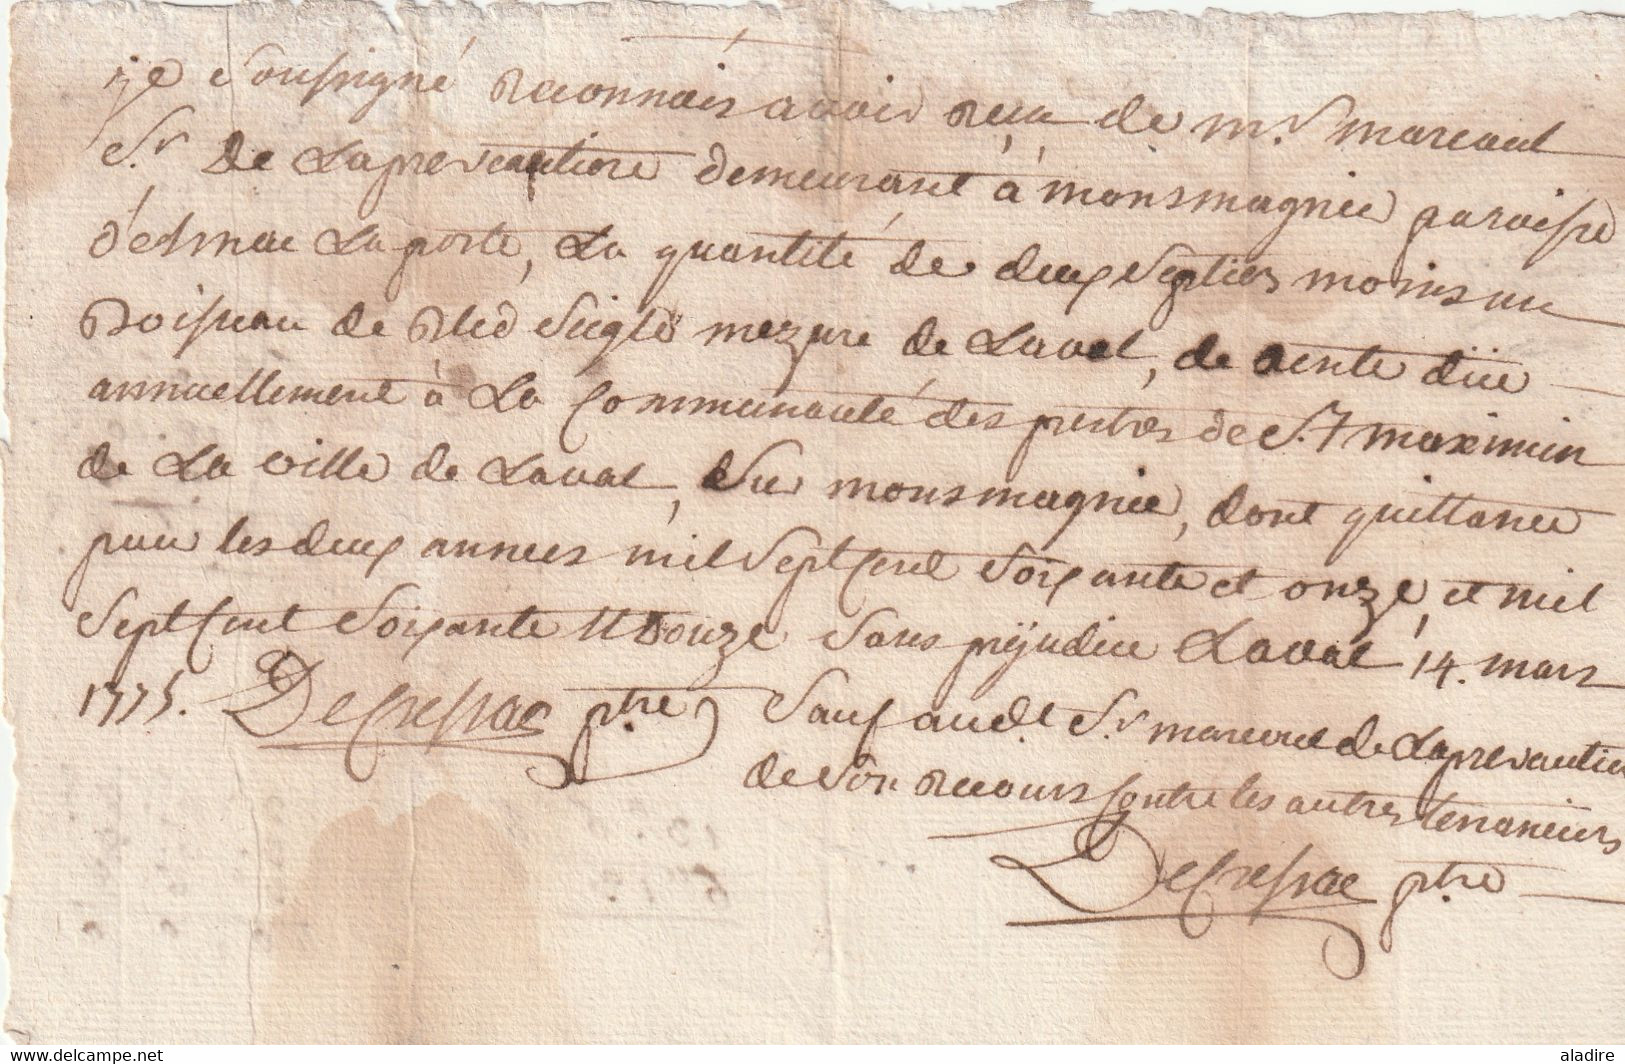 je soussigné reconnais avoir reçu de mr. marcoul
Sr. de Laprevautiere demeurant à monsmagnie paroisse
d'esmac La porte, La quantité de deux septiers moins un
Boisseau de Bled Seigle mezure de Laval, de rente düe
annuellement à La Communauté des prestres de St maximin
de La ville de Laval, sur monsmagnie, dont quittance
pour les deux annees mil sept Cent soixante et onze, et mil
sept Cent soixante et douze sans prejudice Laval 14. mars
1775. DeCressac ptre sauf aud. Sr. marcoul de Laprevautiere
de son recours Contre les autres tenanciers
DeCressac ptre
aladire